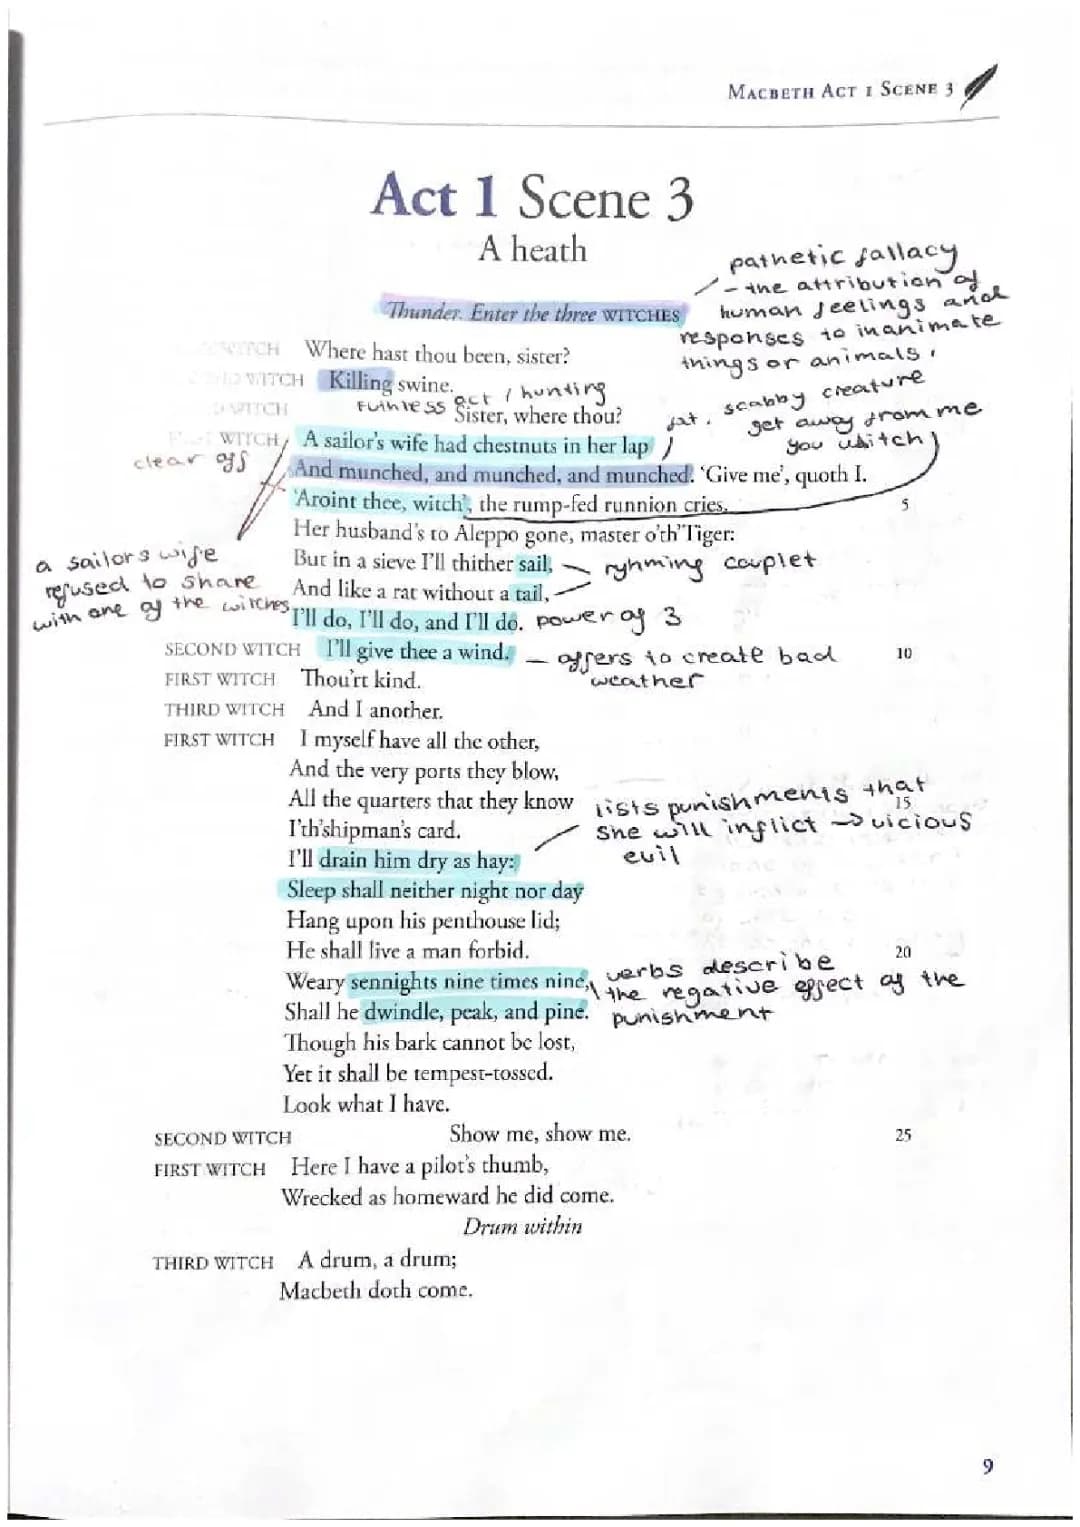 MACBETH ACT 1 SCENE 3
Act 1 Scene 3
A heath
pathetic fallacy
- the attribution of
human feelings and
responses to inanimate
things or animals.
Thunder. Enter the three WITCHES
WITCH Where hast thou been, sister?
WITCH Killing swine.
ruthless act / hunting
WITCH Sister, where thou?
fat, scabby creature
get away from me
you witch
WITCH A sailor's wife had chestnuts in her lap
clear off
And munched, and munched, and munched. 'Give me', quoth I.
'Aroint thee, witch', the rump-fed runnion cries.
5
Her husband's to Aleppo gone, master o'th'Tiger:
a sailors wife
refused to share
with one of the witches
But in a sieve I'll thither sail,
And like a rat without a tail,
ryhming couplet
I'll do, I'll do, and I'll do. power of 3
SECOND WITCH I'll give thee a wind. - offers to create bad
weather
10
FIRST WITCH Thou'rt kind.
THIRD WITCH And I another.
FIRST WITCH I myself have all the other,
And the very ports they blow,
All the quarters that they know
15
I'th'shipman's card.
lists punishments that
she will inflict → vicious
evil
I'll drain him dry as hay:
Sleep shall neither night nor day
Hang upon his penthouse lid;
He shall live a man forbid.
20
Weary sennights nine times nine,
Shall he dwindle, peak, and pine.
verbs describe
the negative effect of the
punishment
Though his bark cannot be lost,
Yet it shall be tempest-tossed.
Look what I have.
SECOND WITCH Show me, show me.
25
FIRST WITCH Here I have a pilot's thumb,
Wrecked as homeward he did come.
Drum within
THIRD WITCH A drum, a drum;
Macbeth doth come.
9